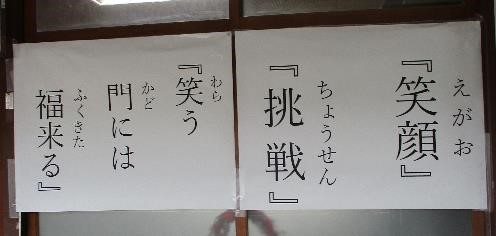 『笑顔』
えがお
『挑戦』
ちょうせん
『笑う
わら
門には
かど
福来る』
ふくきた